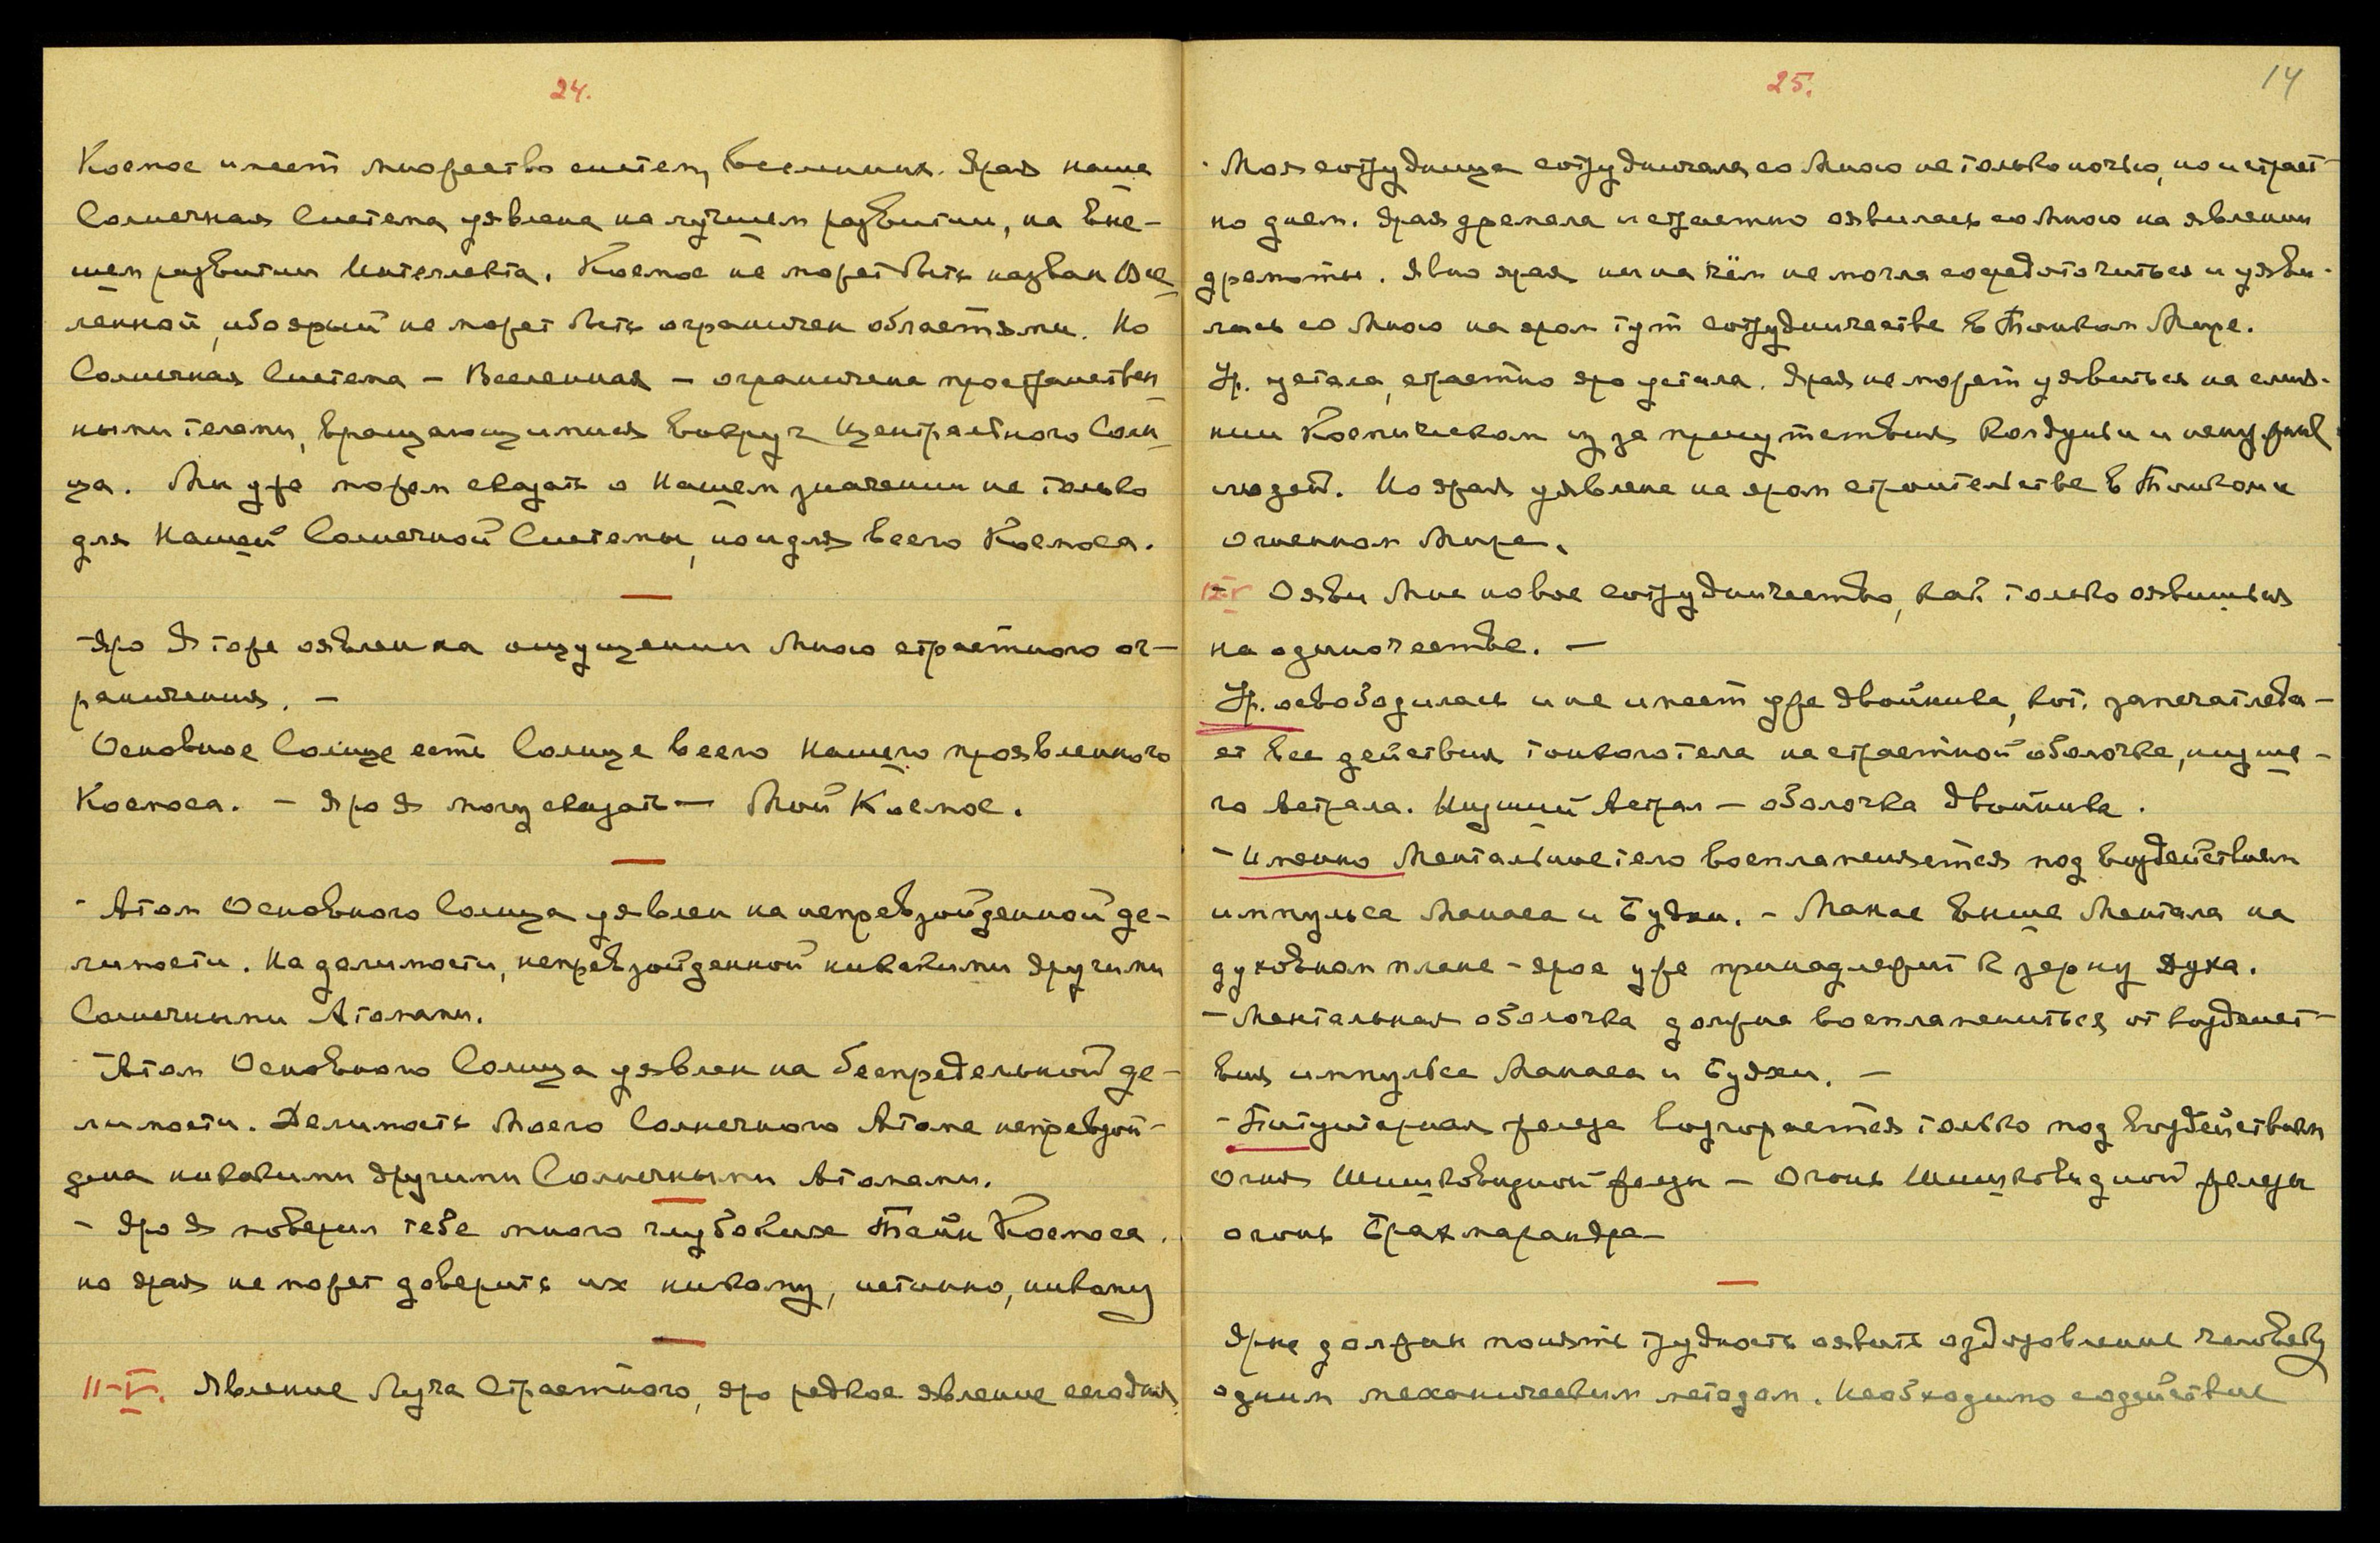 24.
Космос имеет множество систем, Вселенных. Ярая наша
Солнечная Система уявлена на лучшем развитии, на выс-
шем развитии Интеллекта. Космос не может быть назван Все
ленной, ибо ярый не может быть ограничен областями. Но
Солнечная Система – Вселенная – ограничена пространствен
ными телами, вращающимися вокруг Центрального Солн
ца. Мы уже можем сказать о Нашем значении не только
для Нашей Солнечной Системы, но и для всего Космоса.
-Яро Я тоже оявлен на ощущении Мною страстного ог-
раничения. –
Основное Солнце есть Солнце всего Нашего проявленного
Космоса. – Яро Я могу сказать – Мой Космос.
- Атом Основного Солнца уявлен на непревзойденной де-
лимости. На делимости, непревзойденной никакими другими
Солнечными Атомами.
- Атом Основного Солнца уявлен на беспредельной де-
лимости. Делимость Моего Солнечного Атома непревзой-
дена никакими другими Солнечными Атомами.
– Яро Я поверил тебе много глубоких Тайн Космоса,
но ярая не может доверить их никому, истинно, никому
11-V. Явление Луча Страстного, яро редкое явление сегодня
25.
14
- Моя сотрудница сотрудничала со Мною не только ночью, но и страст-
но днем. Ярая дремала и страстно оявилась со Мною на явлении
дремоты. Явно ярая ни на чём не могла сосредоточиться и уяви-
лась со Мною на яром тут сотрудничестве в Тонком Мире.
Ур. устала, страстно яро устала. Ярая не может уявиться на слия-
нии Космическом из за присутствия колдуньи и
людей. Но ярая уявлена на яром строительстве в Тонком и
Огненном Мире.
12-V Ояви Мне новое сотрудничество, как только оявишься
на одиночестве. –
Ур. освободилась и не имеет уже двойника, кот. запечатлева-
ет все действия тонкого тела на страстной оболочке, низше-
го Астрала. Низший Астрал – оболочка двойника.
- Именно Ментальное тело воспламеняется под воздействием
импульса Манаса и Будхи. – Манас выше Ментала на
духовном плане – ярое уже принадлежит к зерну духа.
– Ментальная оболочка должна воспламениться от воздейст-
вия импульса Манаса и Будхи. –
- Питуитарная железа возгорается только под воздействием
Огня Шишковидной железы – Огонь Шишковидной железы
огонь Брахмарандра –
Яркие должны понять трудность оявить оздоровление человеку
одним механическим методом. Необходимо содействие